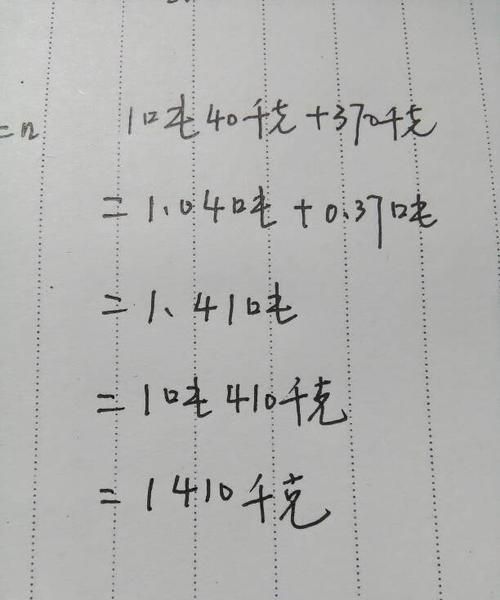 =n
1吨40千克+370千克
=1.04吨+0.37吨
=1.41吨
=1吨410千克
=1410千克